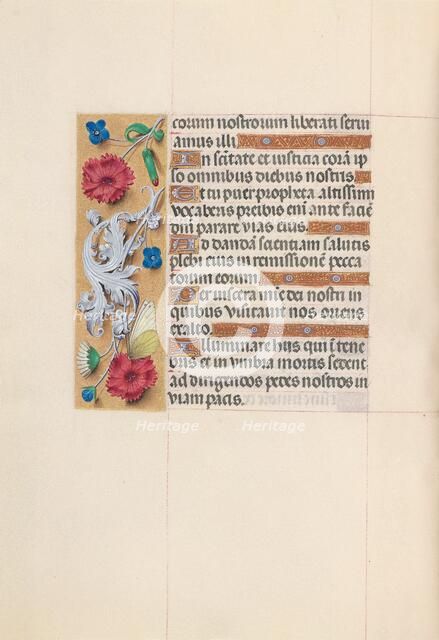 corum nostrorum liberati serui
amus illi
In sc̄itate et iusticia corā ip
so omnibus diebus nostris.
Et tu puer propheta altissimi
vocaberis preibis em̄ ante facie
dn̄i parare vias eius.
Ad dandā scientiam salutis
plebi eius in remissionē pecca
torum eorum
Per viscera mīe dei nostri in
quibus visitauit nos oriens
ex alto.
Illuminare hiis qui ī tene
bris et in vmbra mortis sedent
ad dirigendos pedes nostros in
viam pacis.
Heritage Heritage
Heritage Heritage